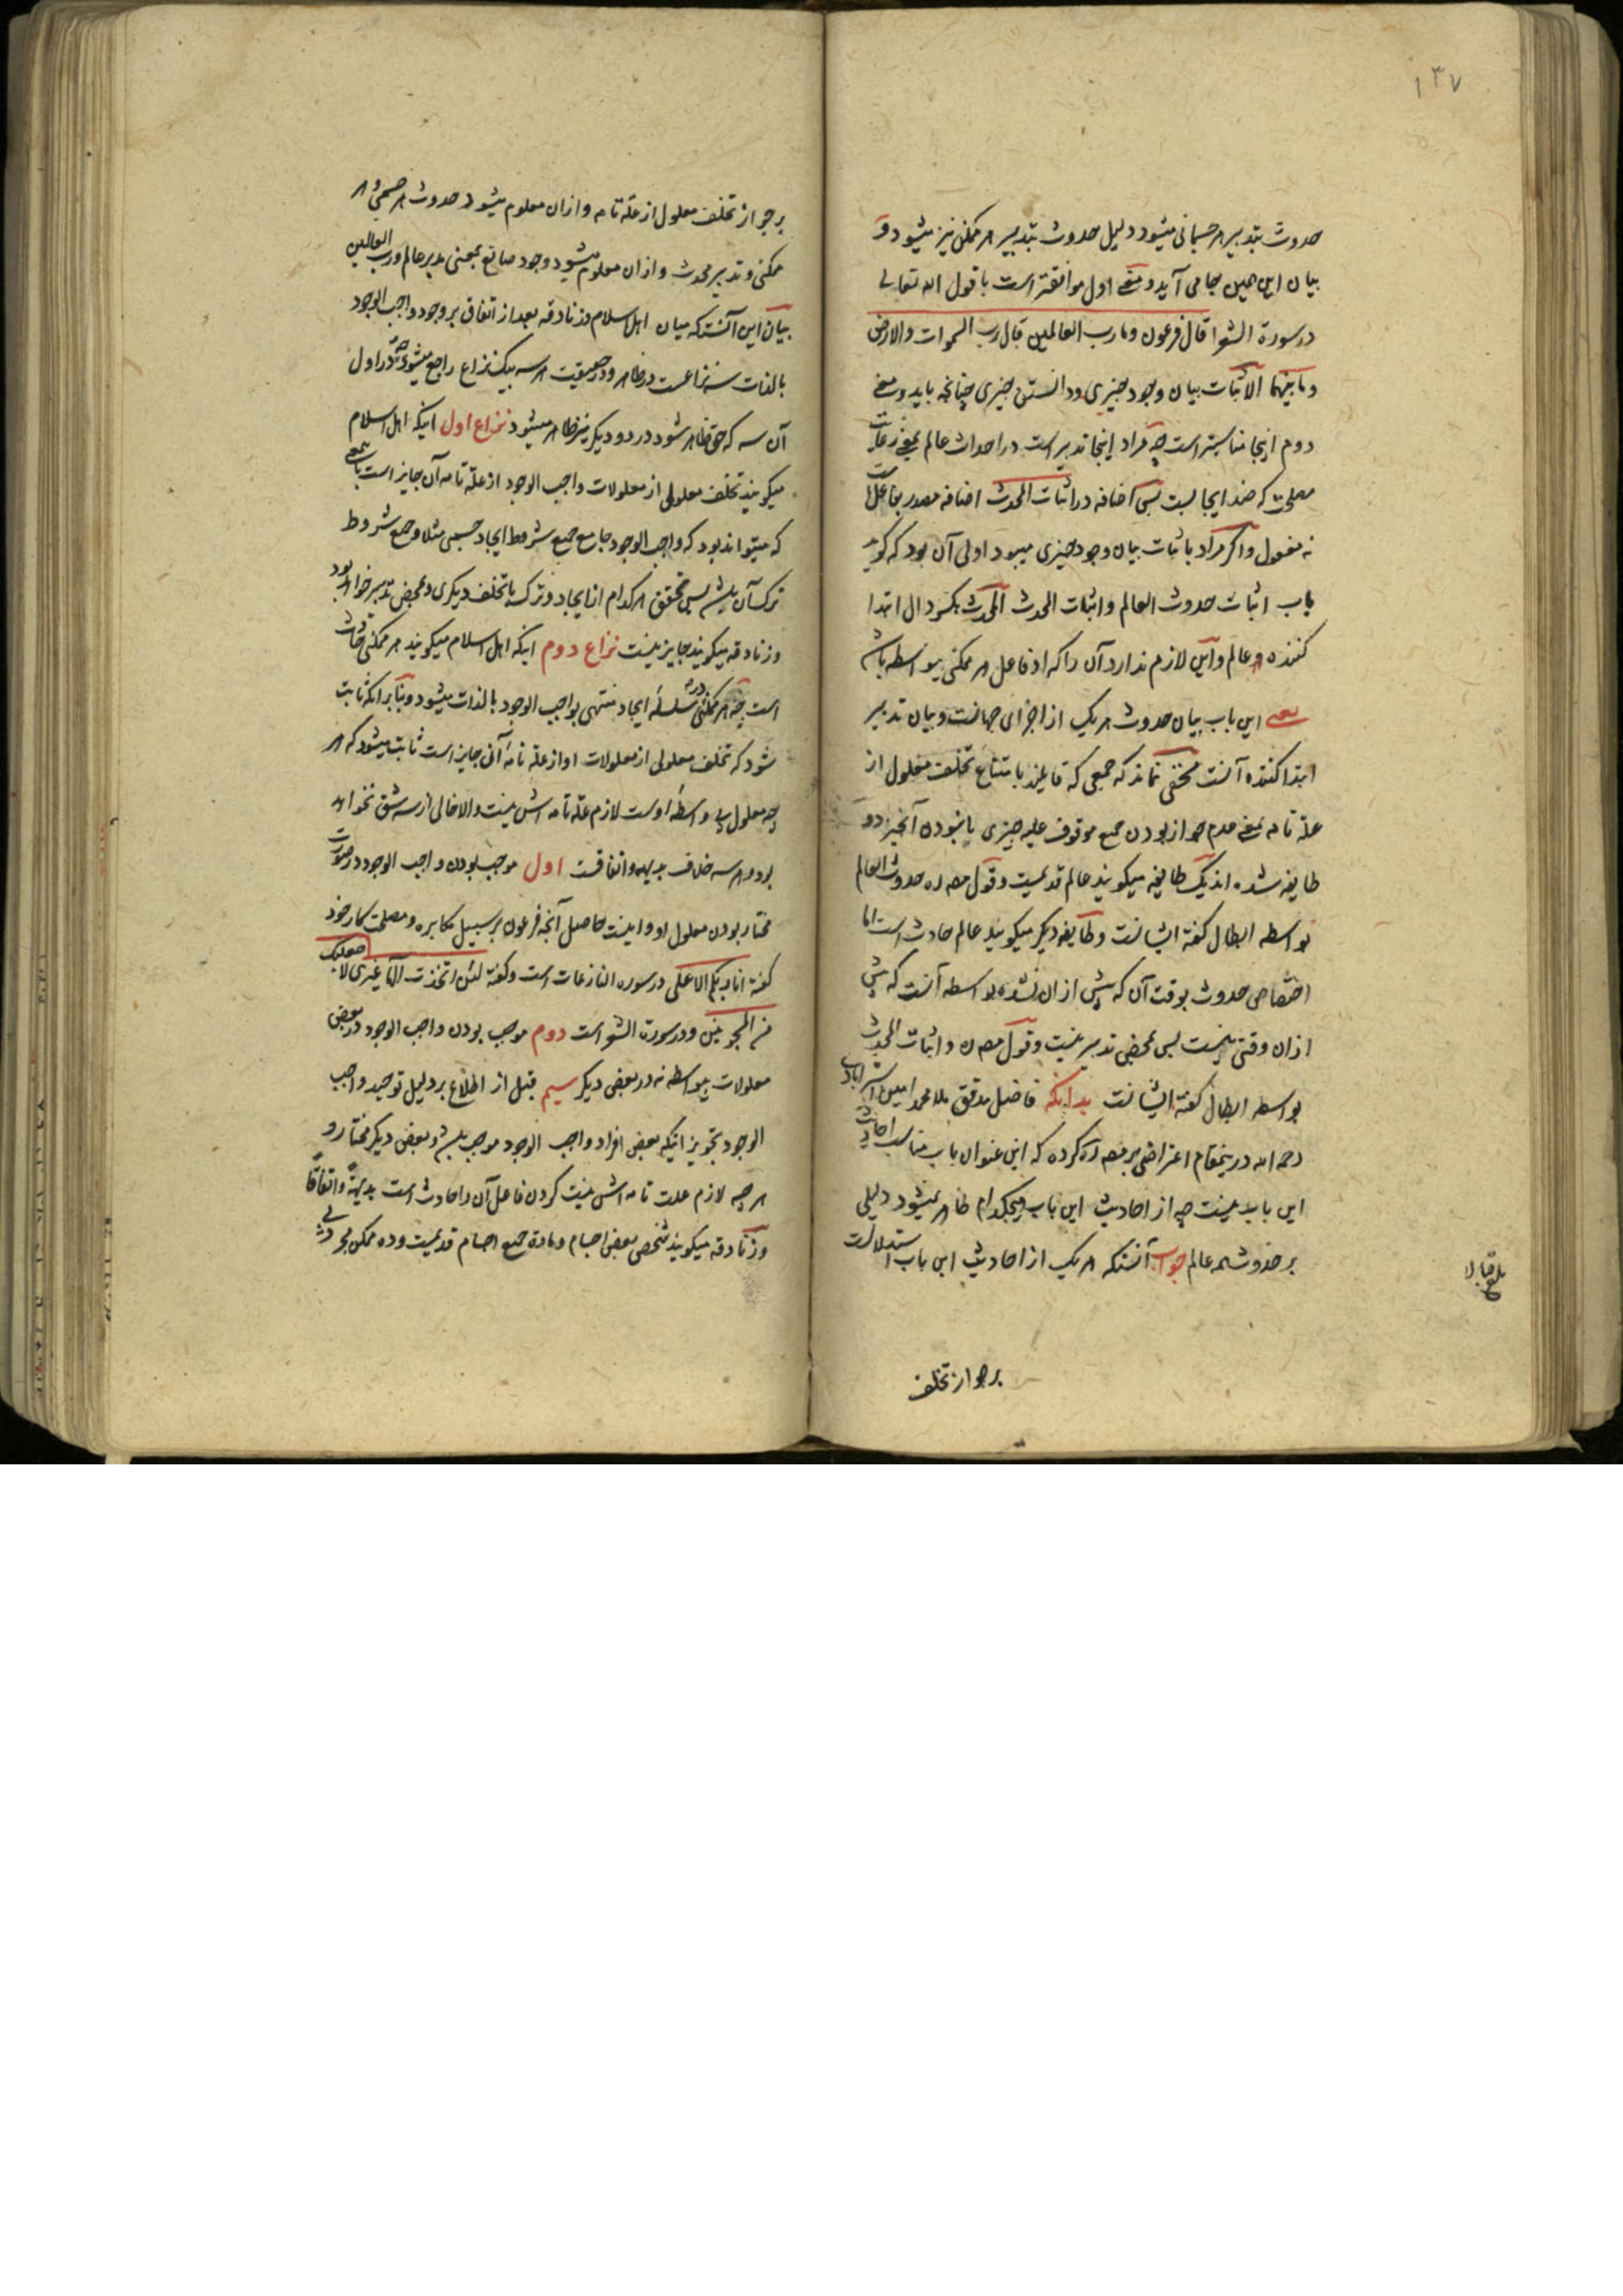 ۱۳۷
حدوث بتدبیر هر جسمانی میشود دلیل حدوث بتدبیر هر ممکنی نیز میشود و
بیان این همین بجا می آید و معنی اول موافقتر است با قول الله تعالی
در سورة الشعرا قال فرعون وما رب العالمین قال رب السموات والارض
وما بینهما الاثبات بیان وجود چیزی و دانستن چیزی چنانچه باید و معنی
دوم اینجا مناسبتر است چه مراد اینجا تدبیر است در احداث عالم بمعنی رعایت
مصلحت که ضد ایجابست پس اضافه در اثبات المحدث اضافه مصدر بفاعل است
نه مفعول و اگر مراد باثبات بیان وجود چیزی میبود اولی آن بود که گوید
باب اثبات حدوث العالم واثبات المحدث المحدث بکسر دال ابتدا
کننده هر عالم و این لازم ندارد آن را که او فاعل هر ممکنی بیواسطه باشد
یعنی این باب بیان حدوث هر یک از اجزای جهانست و بیان تدبیر
ابتدا کننده آنست مخفی نماند که جمعی که قایلند بامتناع تخلف معلول از
علة تامه بمعنی عدم جواز بودن جمیع موقوف علیه چیزی با نبودن آنچیز دو
طایفه شده اند یک طایفه میگویند عالم قدیمست و قول مصره حدوث العالم
بواسطه ابطال گفتهٔ ایشانست و طایفه دیگر میگویند عالم حادث است اما
اختصاص حدوث بوقت آن که پیش از ان نشده بواسطه آنست که پیش
ازان وقتی نیست پس بمحض تدبیر نیست و قول مصره و اثبات المحدث
بواسطه ابطال گفته ایشانست بدانکه فاضل مدقق ملا محمد امین استرابادی
رحمه الله درینمقام اعتراضی بر مصره کرده که این عنوان باب مناسب احادیث
این باب نیست چه از احادیث این باب هیچکدام ظاهر نمیشود دلیلی
بر حدوث همه عالم جواب آنستکه هر یک از احادیث این باب استدلالست
بر جواز تخلف
بر جواز تخلف معلول از علة تامه و ازان معلوم میشود حدوث هر جسمی و هر
ممکنی و تدبیر محدث و ازان معلوم میشود وجود صانع بمعنی مدبر عالم و رب العالمین
بیان این آنست که میان اهل اسلام و زنادقه بعد از اتفاق بر وجود واجب الوجود
بالذات سه نزاعست در ظاهر و در حقیقت هر سه بیک نزاع راجع میشود چه در اول
آن سه که حق ظاهر شود در دو دیگر نیز ظاهر میشود نزاع اول اینکه اهل اسلام
میگویند تخلف معلولی از معلولات واجب الوجود از علة تامه آن جایز است باینمعنی
که میتواند بود که واجب الوجود جامع جمیع شروط ایجاد جسمی مثلا و جمیع شروط
ترک آن باشد پس تحقق هر کدام از ایجاد و ترک با تخلف دیگری و بمحض تدبیر خواهد بود
و زنادقه میگویند جایز نیست نزاع دوم اینکه اهل اسلام میگویند هر ممکنی حادث
است چه هر ممکنی در سلسلهٔ ایجاد منتهی بواجب الوجود بالذات میشود و بنا بر آنکه ثابت
شود که تخلف معلولی از معلولات او از علة تامهٔ آن جایز است ثابت میشود که هر
چه معلول بی واسطهٔ اوست لازم علة تامه اش نیست والا خالی از سه شق نخواهد
بود و هر سه خلاف بدیهه و اتفاقست اول موجب بودن واجب الوجود در صورت
مختار بودن معلول او و اینست حاصل آنچه فرعون بر سبیل مکابره و مصلحت کار خود
گفته انا ربکم الاعلی در سوره النازعات است و گفته لئن اتخذت الها غیری لاجعلنک
من المسجونین و در سورة الشعرا است دوم موجب بودن واجب الوجود در بعض
معلولات بیواسطه نه در بعض دیگر سیم قبل از اطلاع بر دلیل توحید واجب
الوجود تجویز اینکه بعض افراد واجب الوجود موجب باشد و بعض دیگر مختار و
هر چه لازم علت تامه اش نیست کردن فاعل آن را حادث است بدیهةً و اتفاقاً
و زنادقه میگویند شخص بعض اجسام و مادهٔ جمیع اجسام قدیمست و ده ممکن مجرد